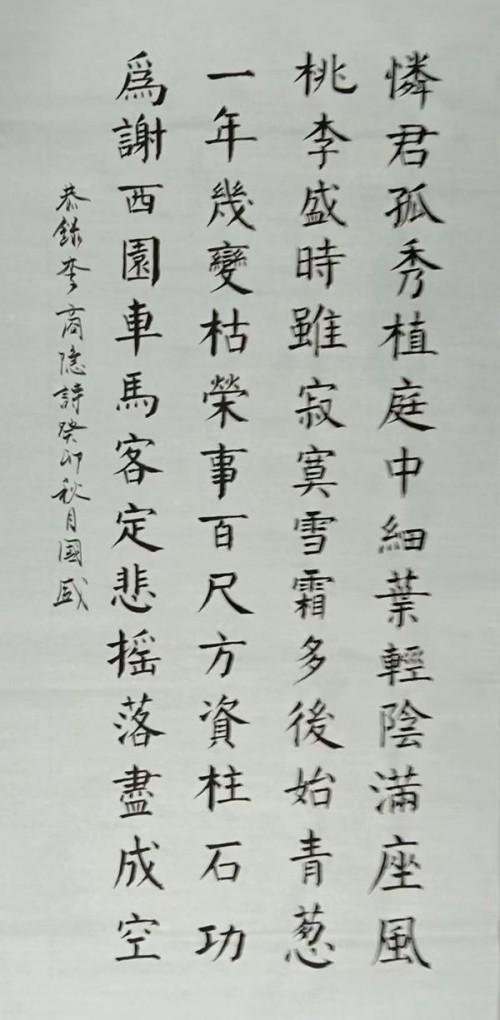 憐君孤秀植庭中細葉輕陰滿座風
桃李盛時雖寂寞雪霜多後始青葱
一年幾變枯榮事百尺方資柱石功
為謝西園車馬客定悲摇落盡成空
恭錄李商隐詩癸卯秋月國盛